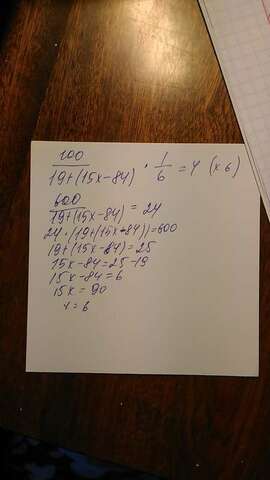 100
19+(15x-84) · 1/6 = 4 (x6)
600
19+(15x-84) = 24
24·(19+(15x-84))=600
19+(15x-84)=25
15x-84=25-19
15x-84=6
15x=90
x=6